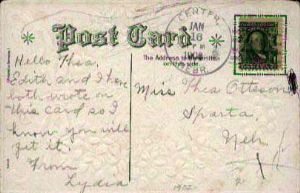 Post Card
CENTER
JAN
16
NEBR.
The Address to be written
on this side.
Hello Thea,
Edith and I have
both wrote on
this card so I
know you will
get it.
From
Lydia
Miss Thea Ottsson
Sparta,
Neb